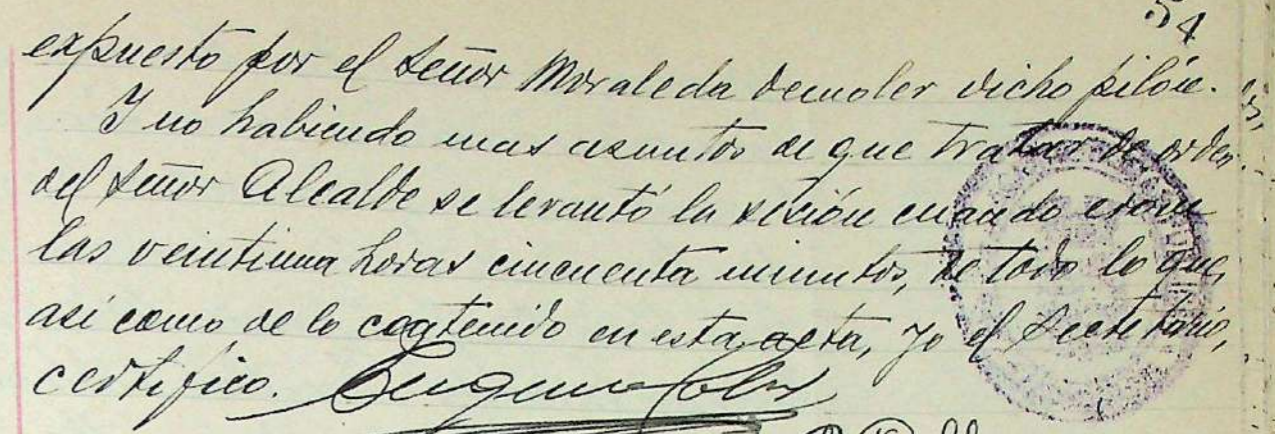 54
expuesto por el señor Moraleda demoler dicho pilón.
Y no habiendo mas asuntos de que tratar de orden
del señor Alcalde se levantó la sesión cuando eran
las veintiuna horas cincuenta minutos, de todo lo que,
asi como de lo contenido en esta acta, yo el Secretario,
certifico. Eugenio